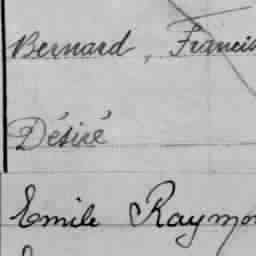 Bernard, Francis
Désiré
Emile Raymon